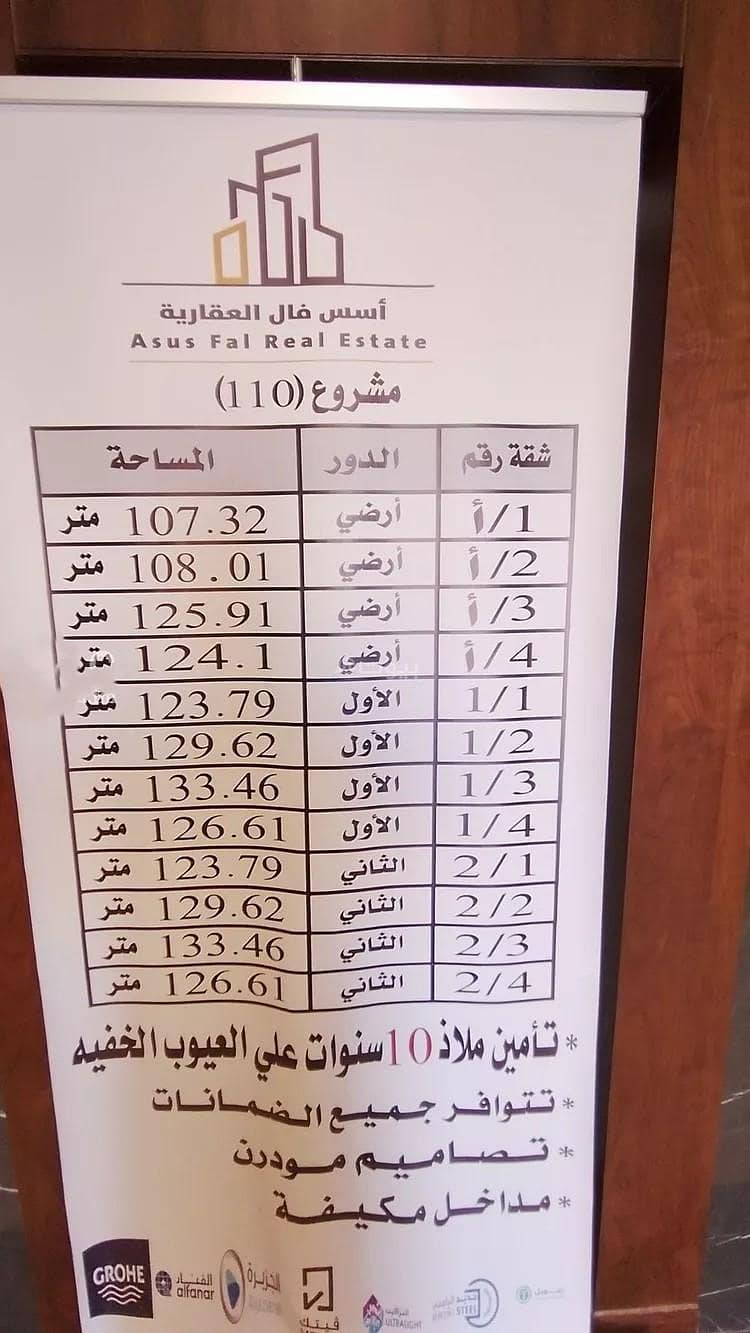 أسس فال العقارية
Asus Fal Real Estate
مشروع (110)
شقة رقم الدور المساحة
أ/1 أرضي 107.32 متر
أ/2 أرضي 108.01 متر
أ/3 أرضي 125.91 متر
أ/4 أرضي 124.1 متر
1/1 الأول 123.79 متر
1/2 الأول 129.62 متر
1/3 الأول 133.46 متر
1/4 الأول 126.61 متر
2/1 الثاني 123.79 متر
2/2 الثاني 129.62 متر
2/3 الثاني 133.46 متر
2/4 الثاني 126.61 متر
* تأمين ملاذ 10 سنوات علي العيوب الخفيه
* تتوافر جميع الضمانات
* تصاميم مودرن
* مداخل مكيفة
GROHE الفنار alfanar الجزيرة فيتك ULTRALIGHT STEEL